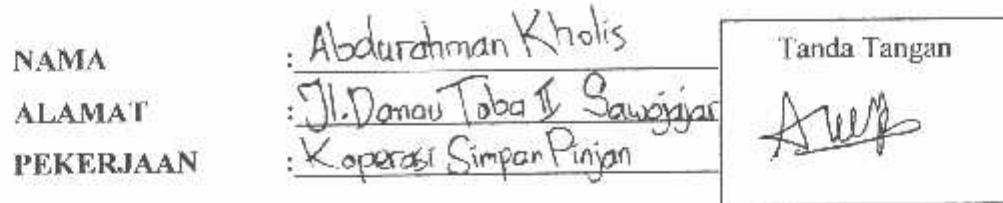 NAMA : Abdurahman Kholis
ALAMAT : Jl. Danau Toba II Sawojajar
PEKERJAAN : Koperasi Simpan Pinjan
Tanda Tangan